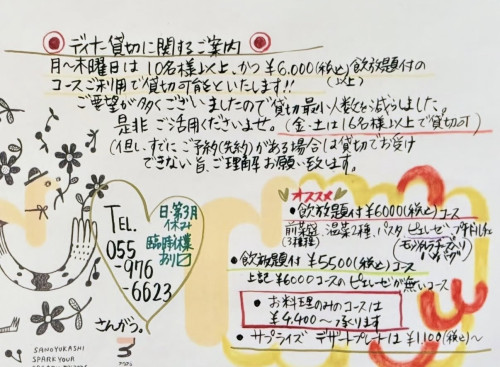 ディナー貸切に関するご案内
月～木曜日は10名様以上、かつ¥6,000(税込)飲放題付の
(以上)
コースご利用で貸切可能といたします!!
ご要望が多くございましたので貸切最小人数を減らしました。
是非ご活用くださいませ。(金・土は16名様以上で貸切可)
(但し、すでにご予約(先約)がある場合は貸切でお受け
できない旨、ご理解お願い致します。
TEL.
055
-976
-6623
日・第3月
休み
臨時休業
あり
さんがつ。
オススメ
●飲放題付¥6000(税込)コース
前菜盛、温菜2種、パスタ
(3種種)
ハンバーグ
●飲放題付¥5500(税込)コース
上記¥6000コースのピューレーゼが無いコース
●お料理のみのコースは
¥4,400～承ります
●サプライズデザートプレートは¥1,100(税込)～
SANOYUKASHI
SPARK YOUR